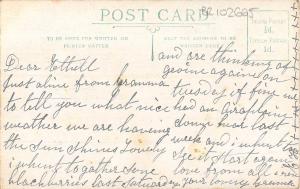 POST CARD
BR102665
TO BE USED FOR THE WRITING OR PRINTED MATTER
THE ADDRESS ONLY TO BE WRITTEN HERE
1d.
1d.
Dear Ethell
Just aline from
to tell you what nice
weather we are haveing
the Sun Shines Lovely
i whent to gather some
blackberries last Saturday
and are thinking of
going again on
tuesday if fine we
had an
down near last
week and i
see it start again
love from all
your loving